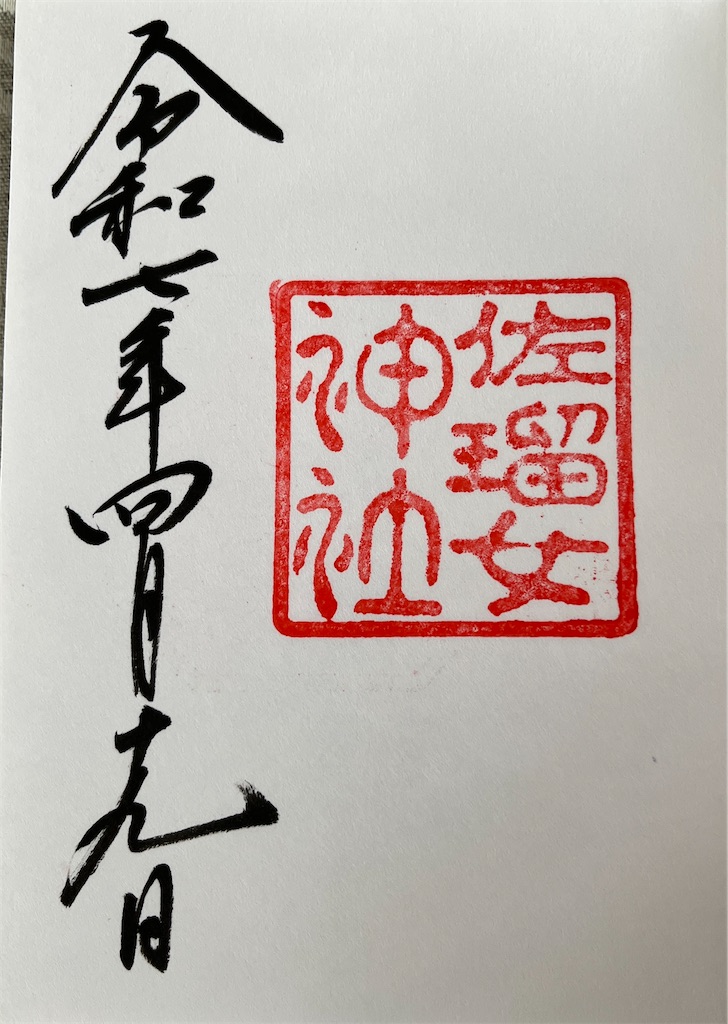 佐瑠女
神社
令和七年四月十九日